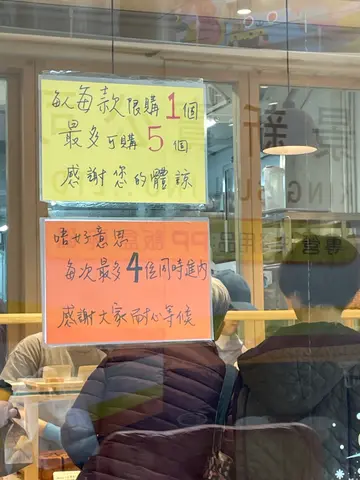 每人每款限購1個
最多可購5個
感謝您的體諒
唔好意思
每次最多4位同時進內
感謝大家耐心等候
新